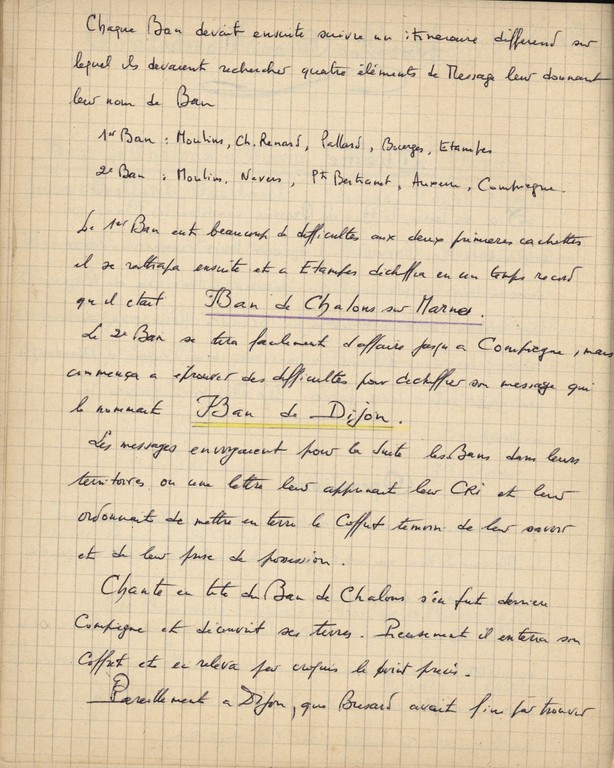 Chaque Ban devait ensuite suivre un itineraire different sur
lequel ils devaient rechercher quatre éléments de Message leur donnant
leur nom de Ban
1er Ban : Moulins, Ch. Renard, Pallard, Bourges, Etampes
2e Ban : Moulins, Nevers, Pt Bertranet, Auxerre, Compiegne.
Le 1er Ban eut beaucoup de difficultes aux deux premieres cachettes
il se rattrapa ensuite et a Etampes dechiffra en un temps record
qu il etait Ban de Chalons sur Marne.
Le 2e Ban se tira facilement d'affaire jusqu a Compiegne, mais
commença a éprouver des difficultés pour dechiffrer son message qui
le nommait Ban de Dijon.
Les messages envoyaient pour la suite les Bans dans leurs
territoires ou une lettre leur apprenait leur CRI et leur
ordonnait de mettre en terre le Coffret temoin de leur savoir
et de leur prise de possession.
Chante en tete du Ban de Chalons s'en fut derriere
Compiegne et découvrit ses terres. Pieusement il enterra son
Coffret et en releva par croquis le point précis.
Pareillement a Dijon, que Busard avait fini par trouver